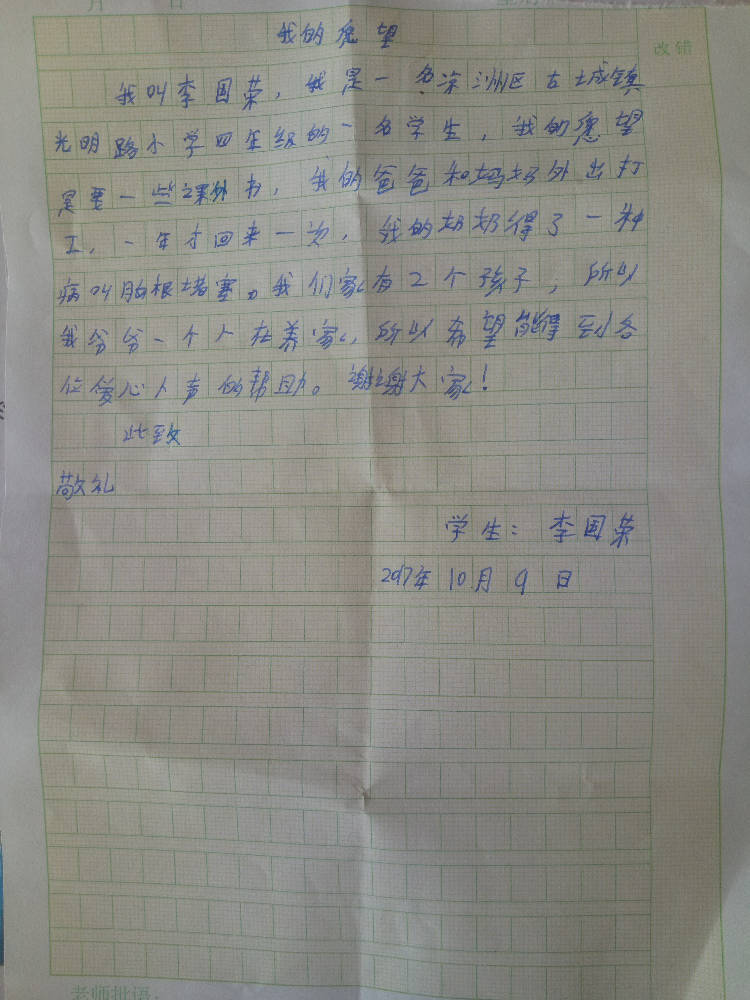 月 日
我的愿望
改错
我叫李国荣，我是一名深洲区古城镇
光明路小学四年级的一名学生，我的愿望
是要一些课外书，我的爸爸和妈妈外出打
工，一年才回来一次，我的奶奶得了一种
病叫脑根堵塞。我们家有2个孩子，所以
我爷爷一个人在养家，所以希望能得到各
位爱心人声的帮助。谢谢大家！
此致
敬礼
学生：李国荣
2017年10月9日
老师批语：